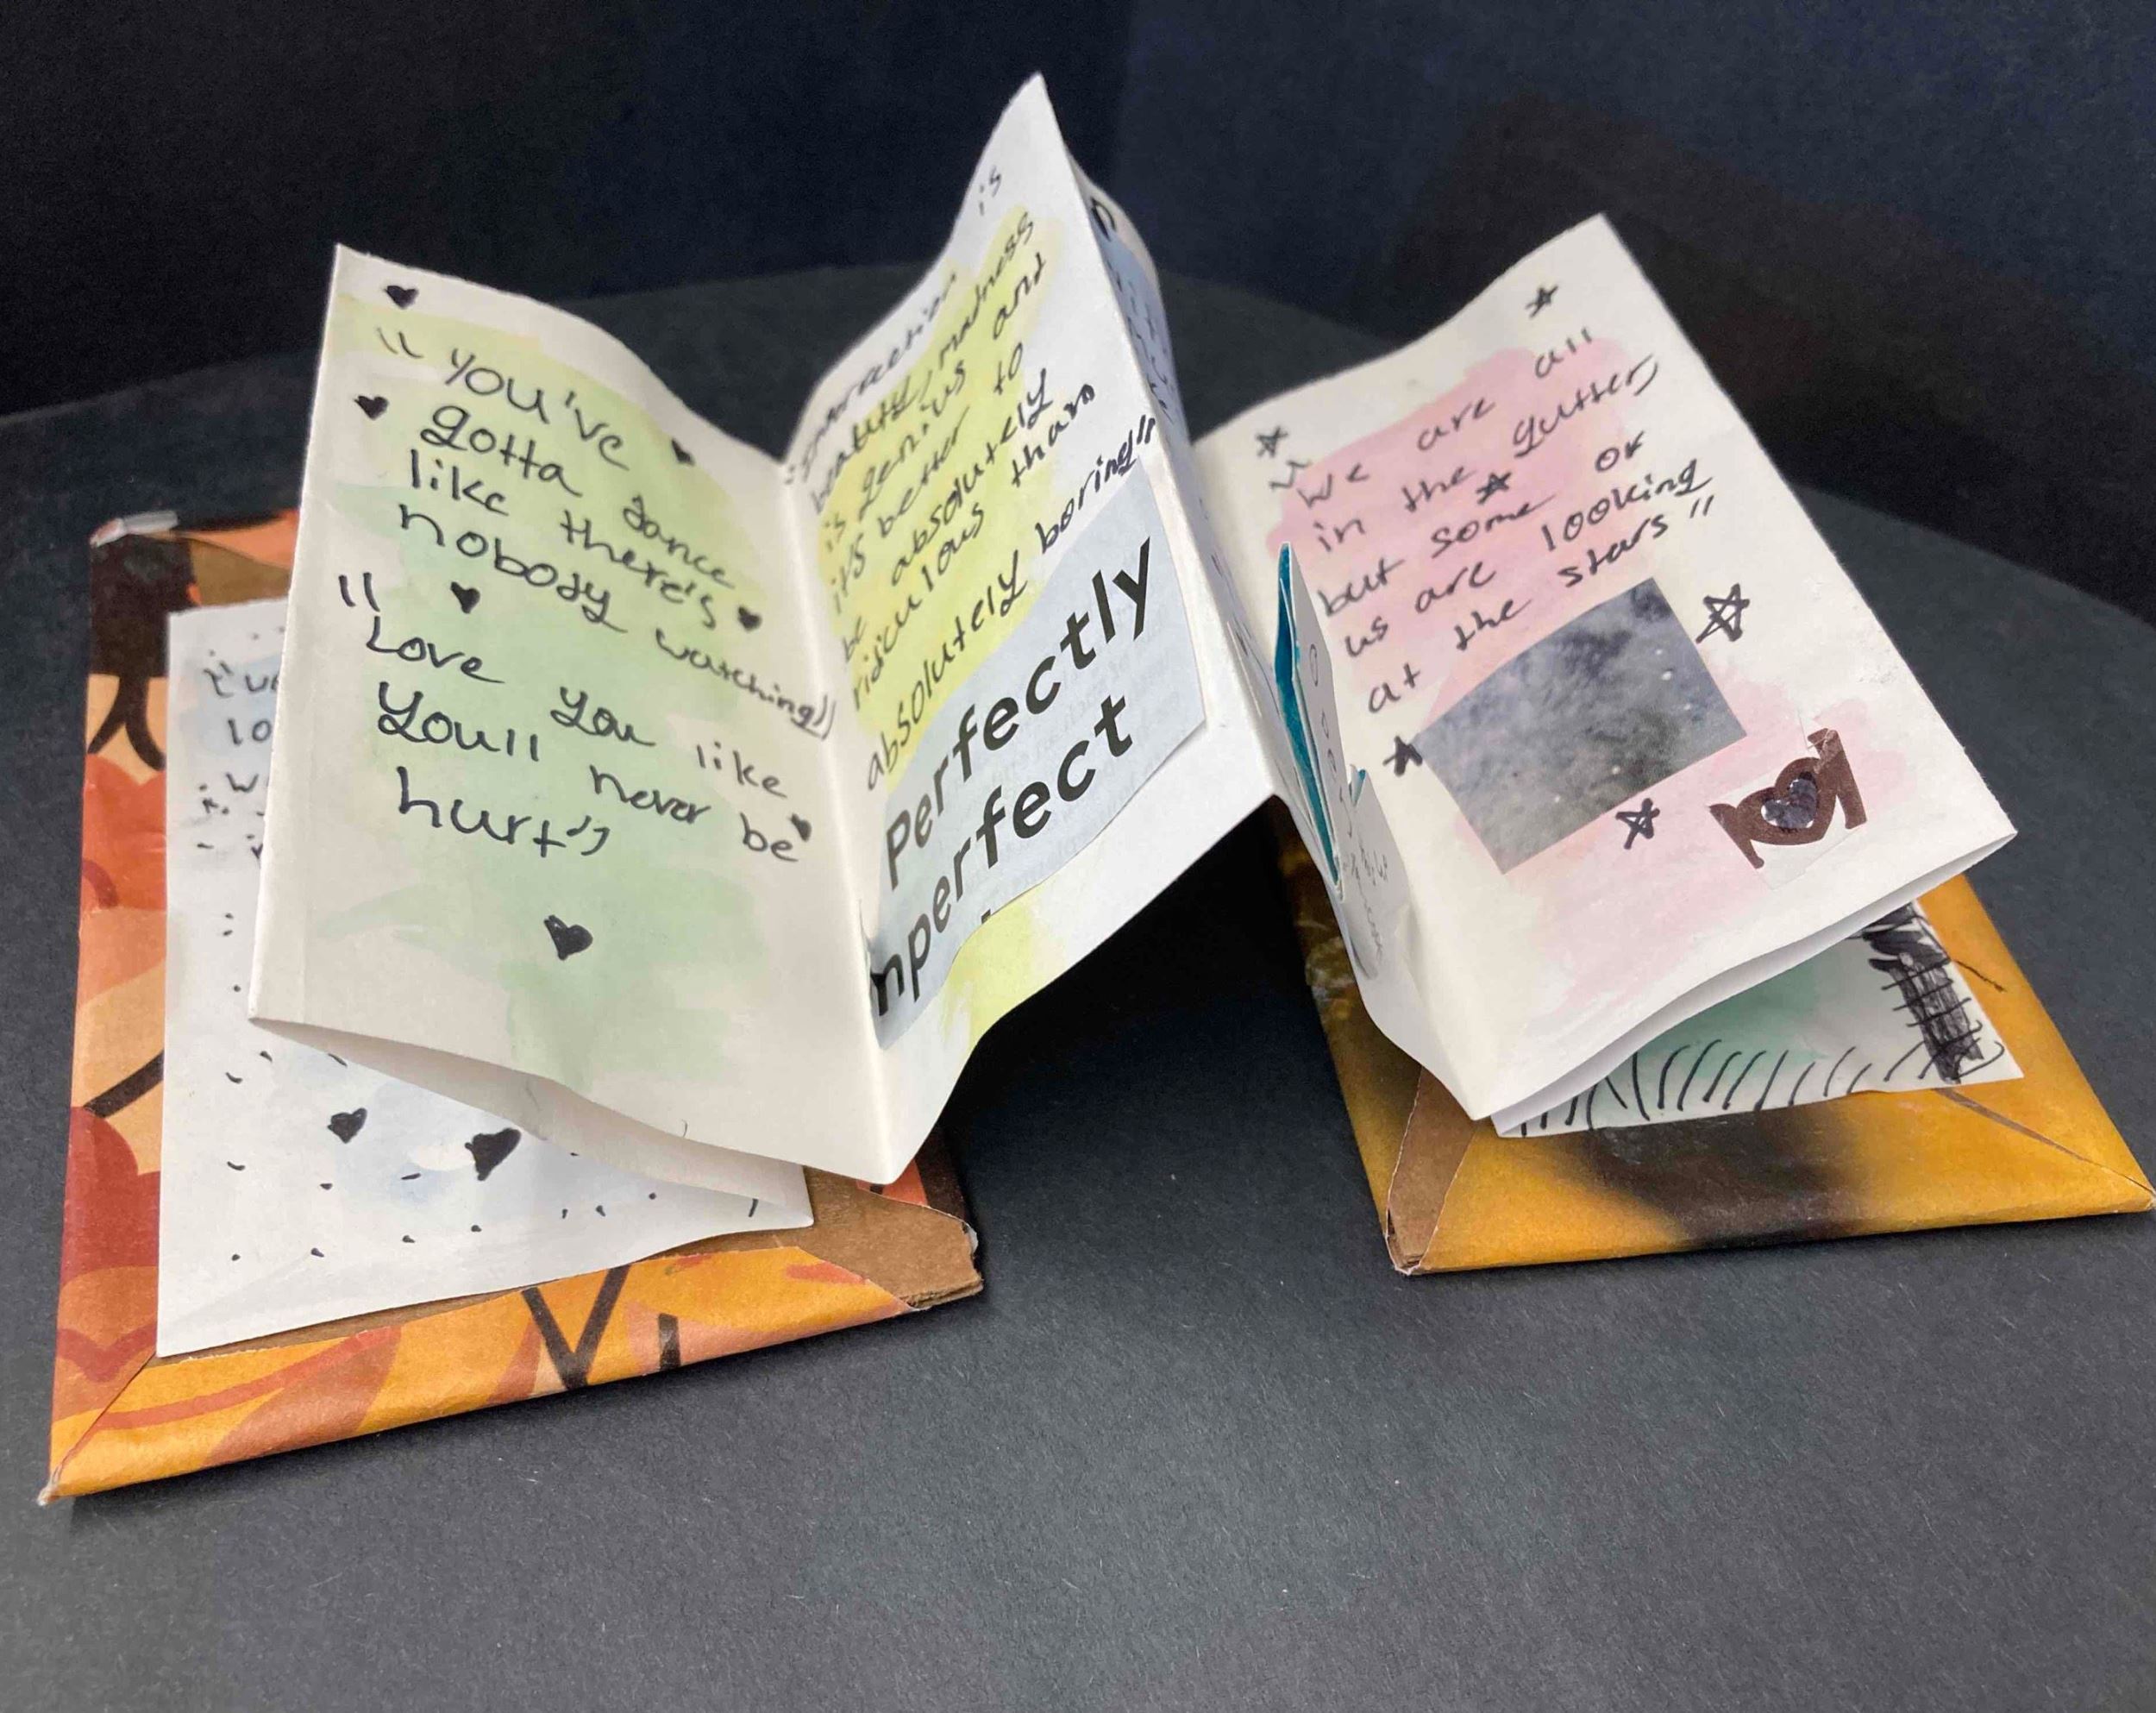 "you've
gotta dance
like there's
nobody watching"
"Love you like
you'll never be
hurt"
"imperfection is
beauty, madness
is genius and
it's better to
be absolutely
ridiculous than
absolutely boring"
Perfectly
mperfect
"We are all
in the gutter,
but some of
us are looking
at the stars"